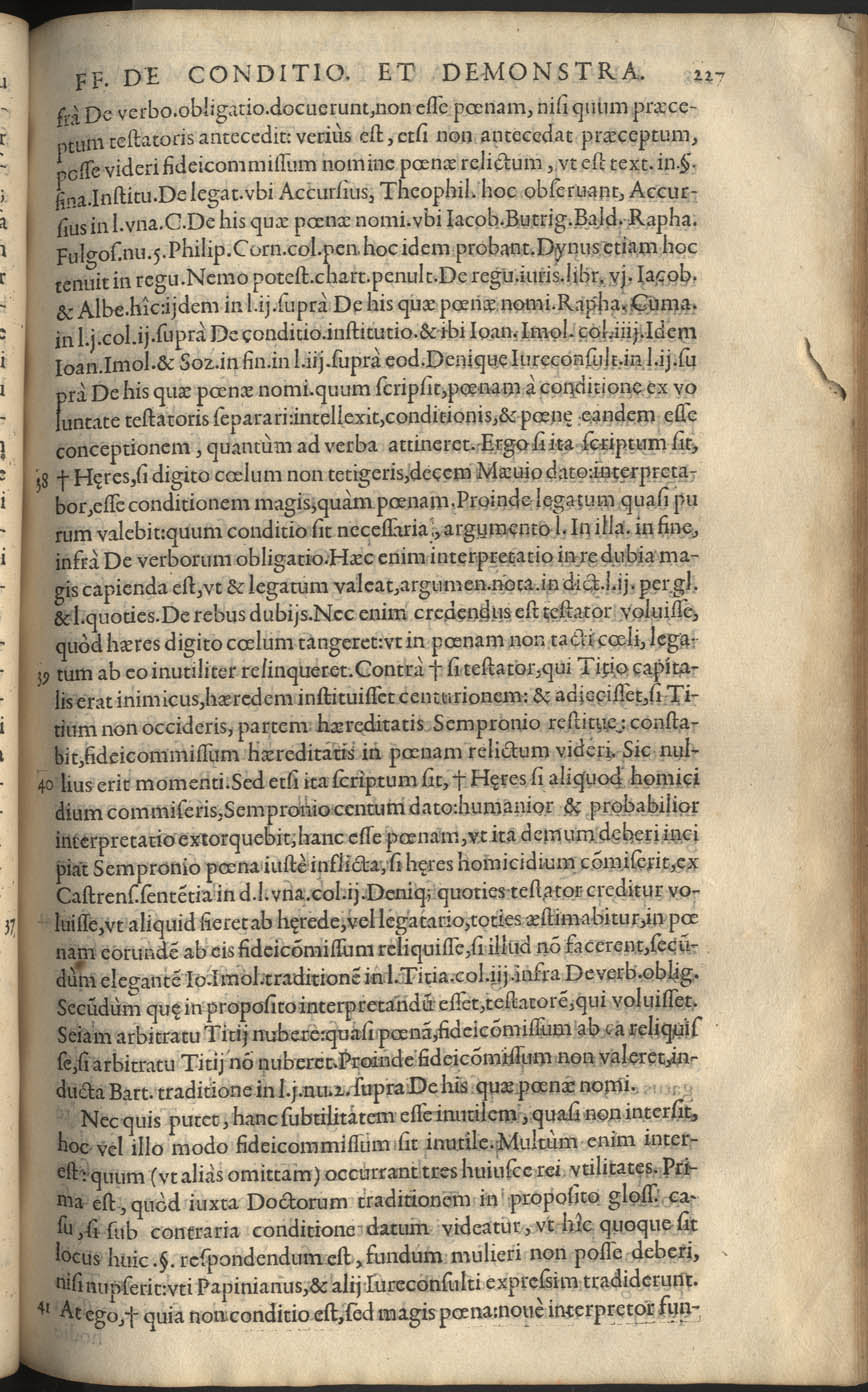 FF. DE CONDITIO. ET DEMONSTRA. 227
frà De verbo.obligatio.docuerunt,non esse pœnam, nisi quum præce-
ptum testatoris antecedit: veriùs est, etsi non antecedat præceptum,
posse videri fideicommissum nomine pœnæ relictum, vt est text. in.§.
fina.Institu.De legat.vbi Accursius, Theophil. hoc obseruant, Accur-
sius in l.vna.C.De his quæ pœnæ nomi.vbi Iacob.Butrig.Bald. Rapha.
Fulgos.nu.5.Philip.Corn.col.pen.hoc idem probant.Dynus etiam hoc
tenuit in regu.Nemo potest.chart.penult.De regu.iuris.libr. vj. Iacob.
& Albe.hîc:ijdem in l.ij.suprà De his quæ pœnæ nomi.Rapha. Cuma.
in l.j.col.ij.suprà De conditio.institutio.& ibi Ioan. Imol. col.iiij.Idem
Ioan.Imol.& Soz.in fin.in l.iij.suprà eod.Denique Iureconsult.in l.ij.su
prà De his quæ pœnæ nomi.quum scripsit,pœnam à conditione ex vo
luntate testatoris separari:intellexit,conditionis,& pœnę eandem esse
conceptionem, quantùm ad verba attineret. Ergo si ita scriptum sit,
38 † Hęres,si digito cœlum non tetigeris,decem Mæuio dato:interpreta-
bor,esse conditionem magis,quàm pœnam.Proinde legatum quasi pu
rum valebit:quum conditio sit necessaria, argumento l. In illa. in fine,
infrà De verborum obligatio.Hæc enim interpretatio in re dubia ma-
gis capienda est,vt & legatum valeat,argumen.nota.in dict.l.ij. per gl.
& l.quoties.De rebus dubijs.Nec enim credendus est testator voluisse,
quòd hæres digito cœlum tangeret:vt in pœnam non tacti cœli, lega-
39 tum ab eo inutiliter relinqueret.Contrà † si testator,qui Titio capita-
lis erat inimicus,hæredem instituisset centurionem: & adiecisset,si Ti-
tium non occideris, partem hæreditatis Sempronio restitue: consta-
bit,fideicommissum hæreditatis in pœnam relictum videri. Sic nul-
40 lius erit momenti.Sed etsi ita scriptum sit, † Hęres si aliquod homici
dium commiseris,Sempronio centum dato:humanior & probabilior
interpretatio extorquebit,hanc esse pœnam,vt ita demum deberi inci
piat Sempronio pœna iustè inflicta, si hęres homicidium cōmiserit,ex
Castrens.sentētia in d.l.vna.col.ij.Deniq; quoties testator creditur vo-
37 luisse,vt aliquid fieret ab hęrede,vel legatario,toties æstimabitur,in pœ
nam eorundē ab eis fideicōmissum reliquisse,si illud nō facerent,secū-
dùm elegantē Io.Imol.traditionē in l.Titia.col.iij.infra De verb.oblig.
Secūdùm quę in proposito interpretandū esset,testatorē,qui voluisset.
Seiam arbitratu Titij nubere:quasi pœnā,fideicōmissum ab ea reliquis
se,si arbitratu Titij nō nuberet.Proinde fideicōmissum non valeret,in-
ducta Bart. traditione in l.j.nu.2. supra De his quæ pœnæ nomi.
Nec quis putet, hanc subtilitatem esse inutilem, quasi non intersit,
hoc vel illo modo fideicommissum sit inutile. Multùm enim inter-
est: quum (vt aliàs omittam) occurrant tres huiusce rei vtilitates. Pri-
ma est, quòd iuxta Doctorum traditionem in proposito gloss. ca-
su, si sub contraria conditione datum videatur, vt hîc quoque sit
locus huic .§. respondendum est, fundum mulieri non posse deberi,
nisi nupserit:vti Papinianus,& alij Iureconsulti expressim tradiderunt.
41 At ego,† quia non conditio est,sed magis pœna:nouè interpretor fun-